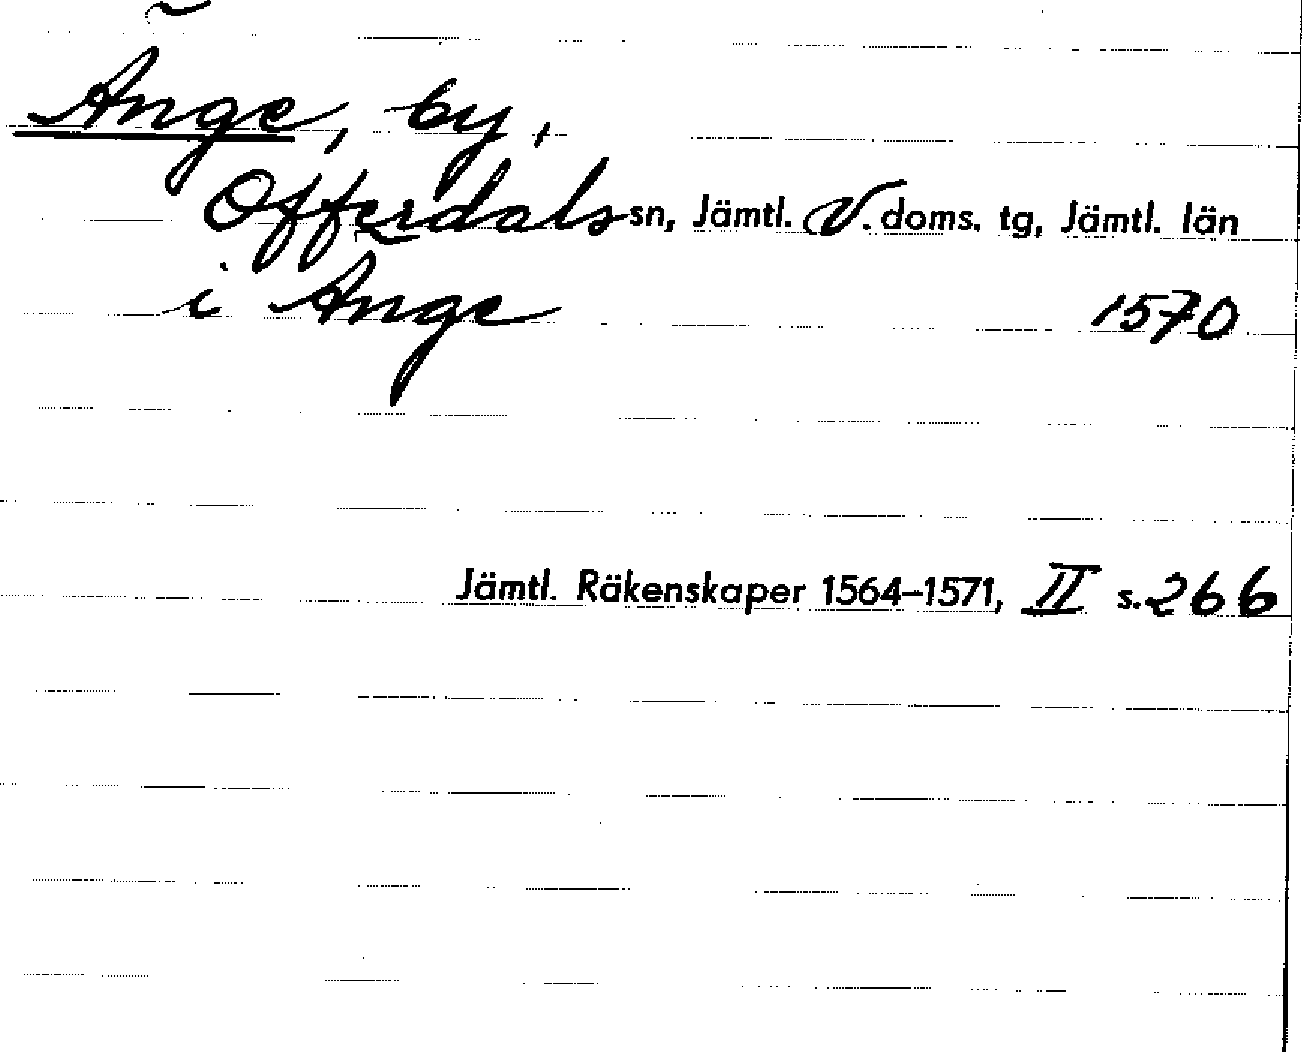 Änge, by,
Offerdals sn, Jämtl. V. doms. tg, Jämtl. län
i Ange 1570
Jämtl. Räkenskaper 1564–1571, II s. 266